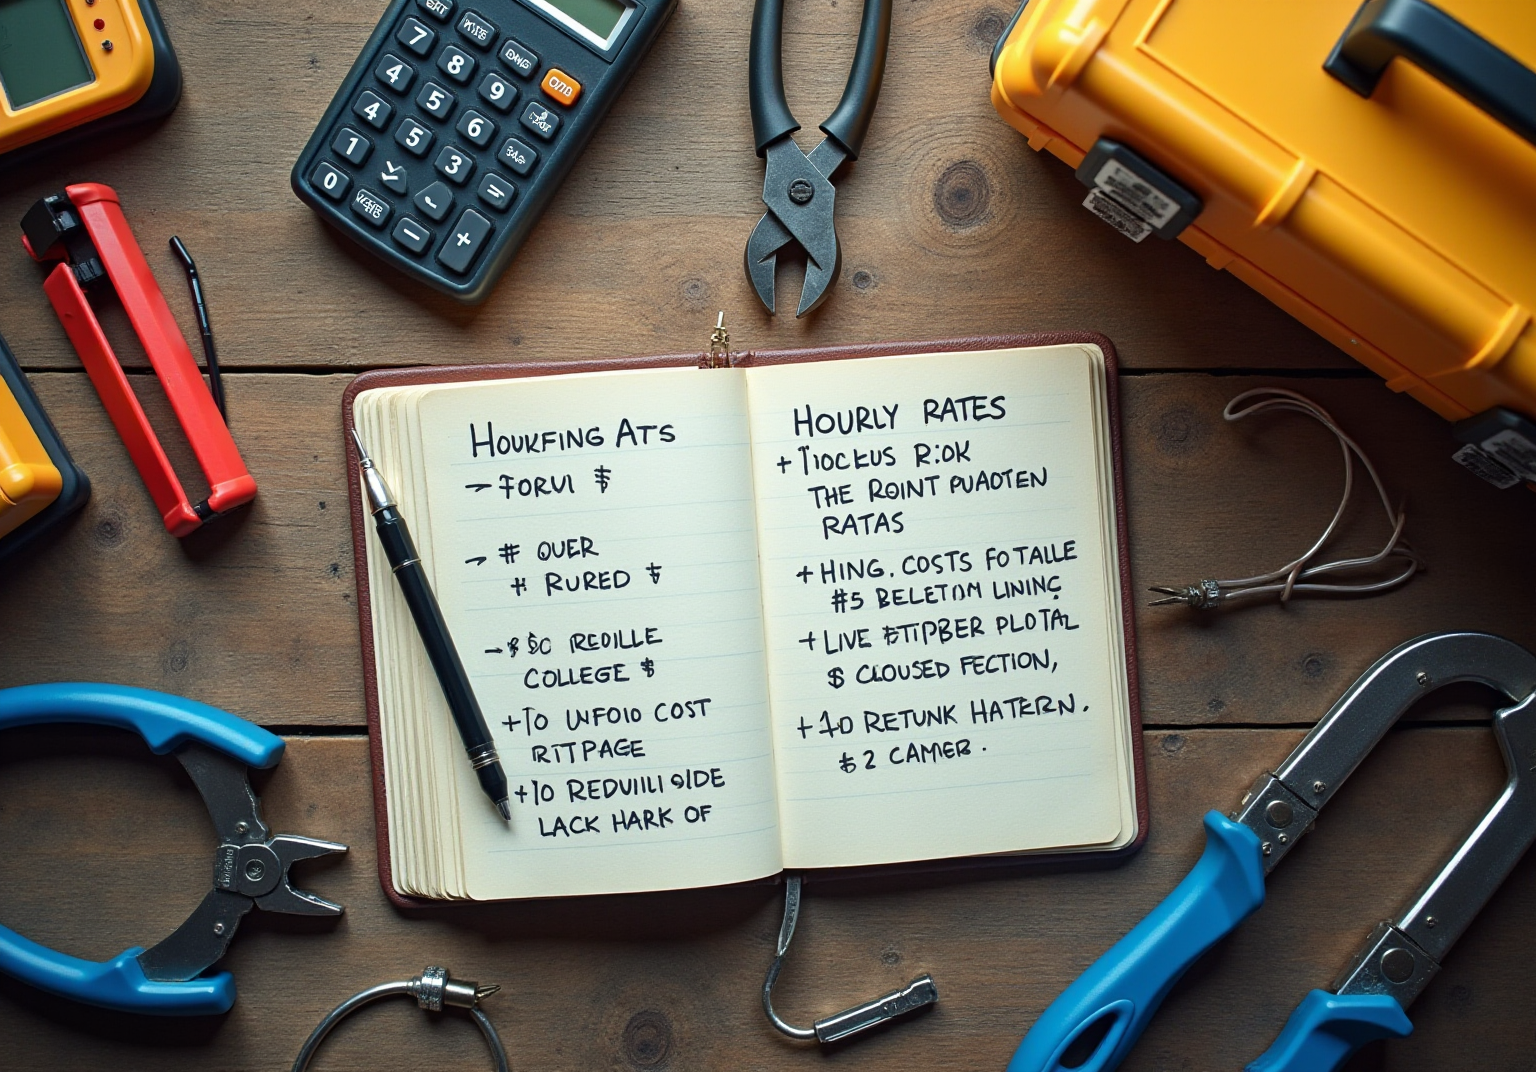 7
8
9
4
5
6
4
5
3
1
0
=
-
+
HOUKFING ATS
- FORVI $
- # OUER
# RURED $
- $ $0 REDILLE
COLLEGE $
+TO UNFOIO COST
RTTPAGE
+10 REDVILI SIDE
LACK HARK OF
HOURLY RATES
+ TIOCKUS R:OK
THE ROINT PUAOTEN
RATAS
+ HING. COSTS FOTALLE
#5 BELETOM LINING
+ LIVE STIPBER PLOTAL
$ CLOUSED FECTION,
+ 10 RETUNK HATERN.
$ 2 CAMER.